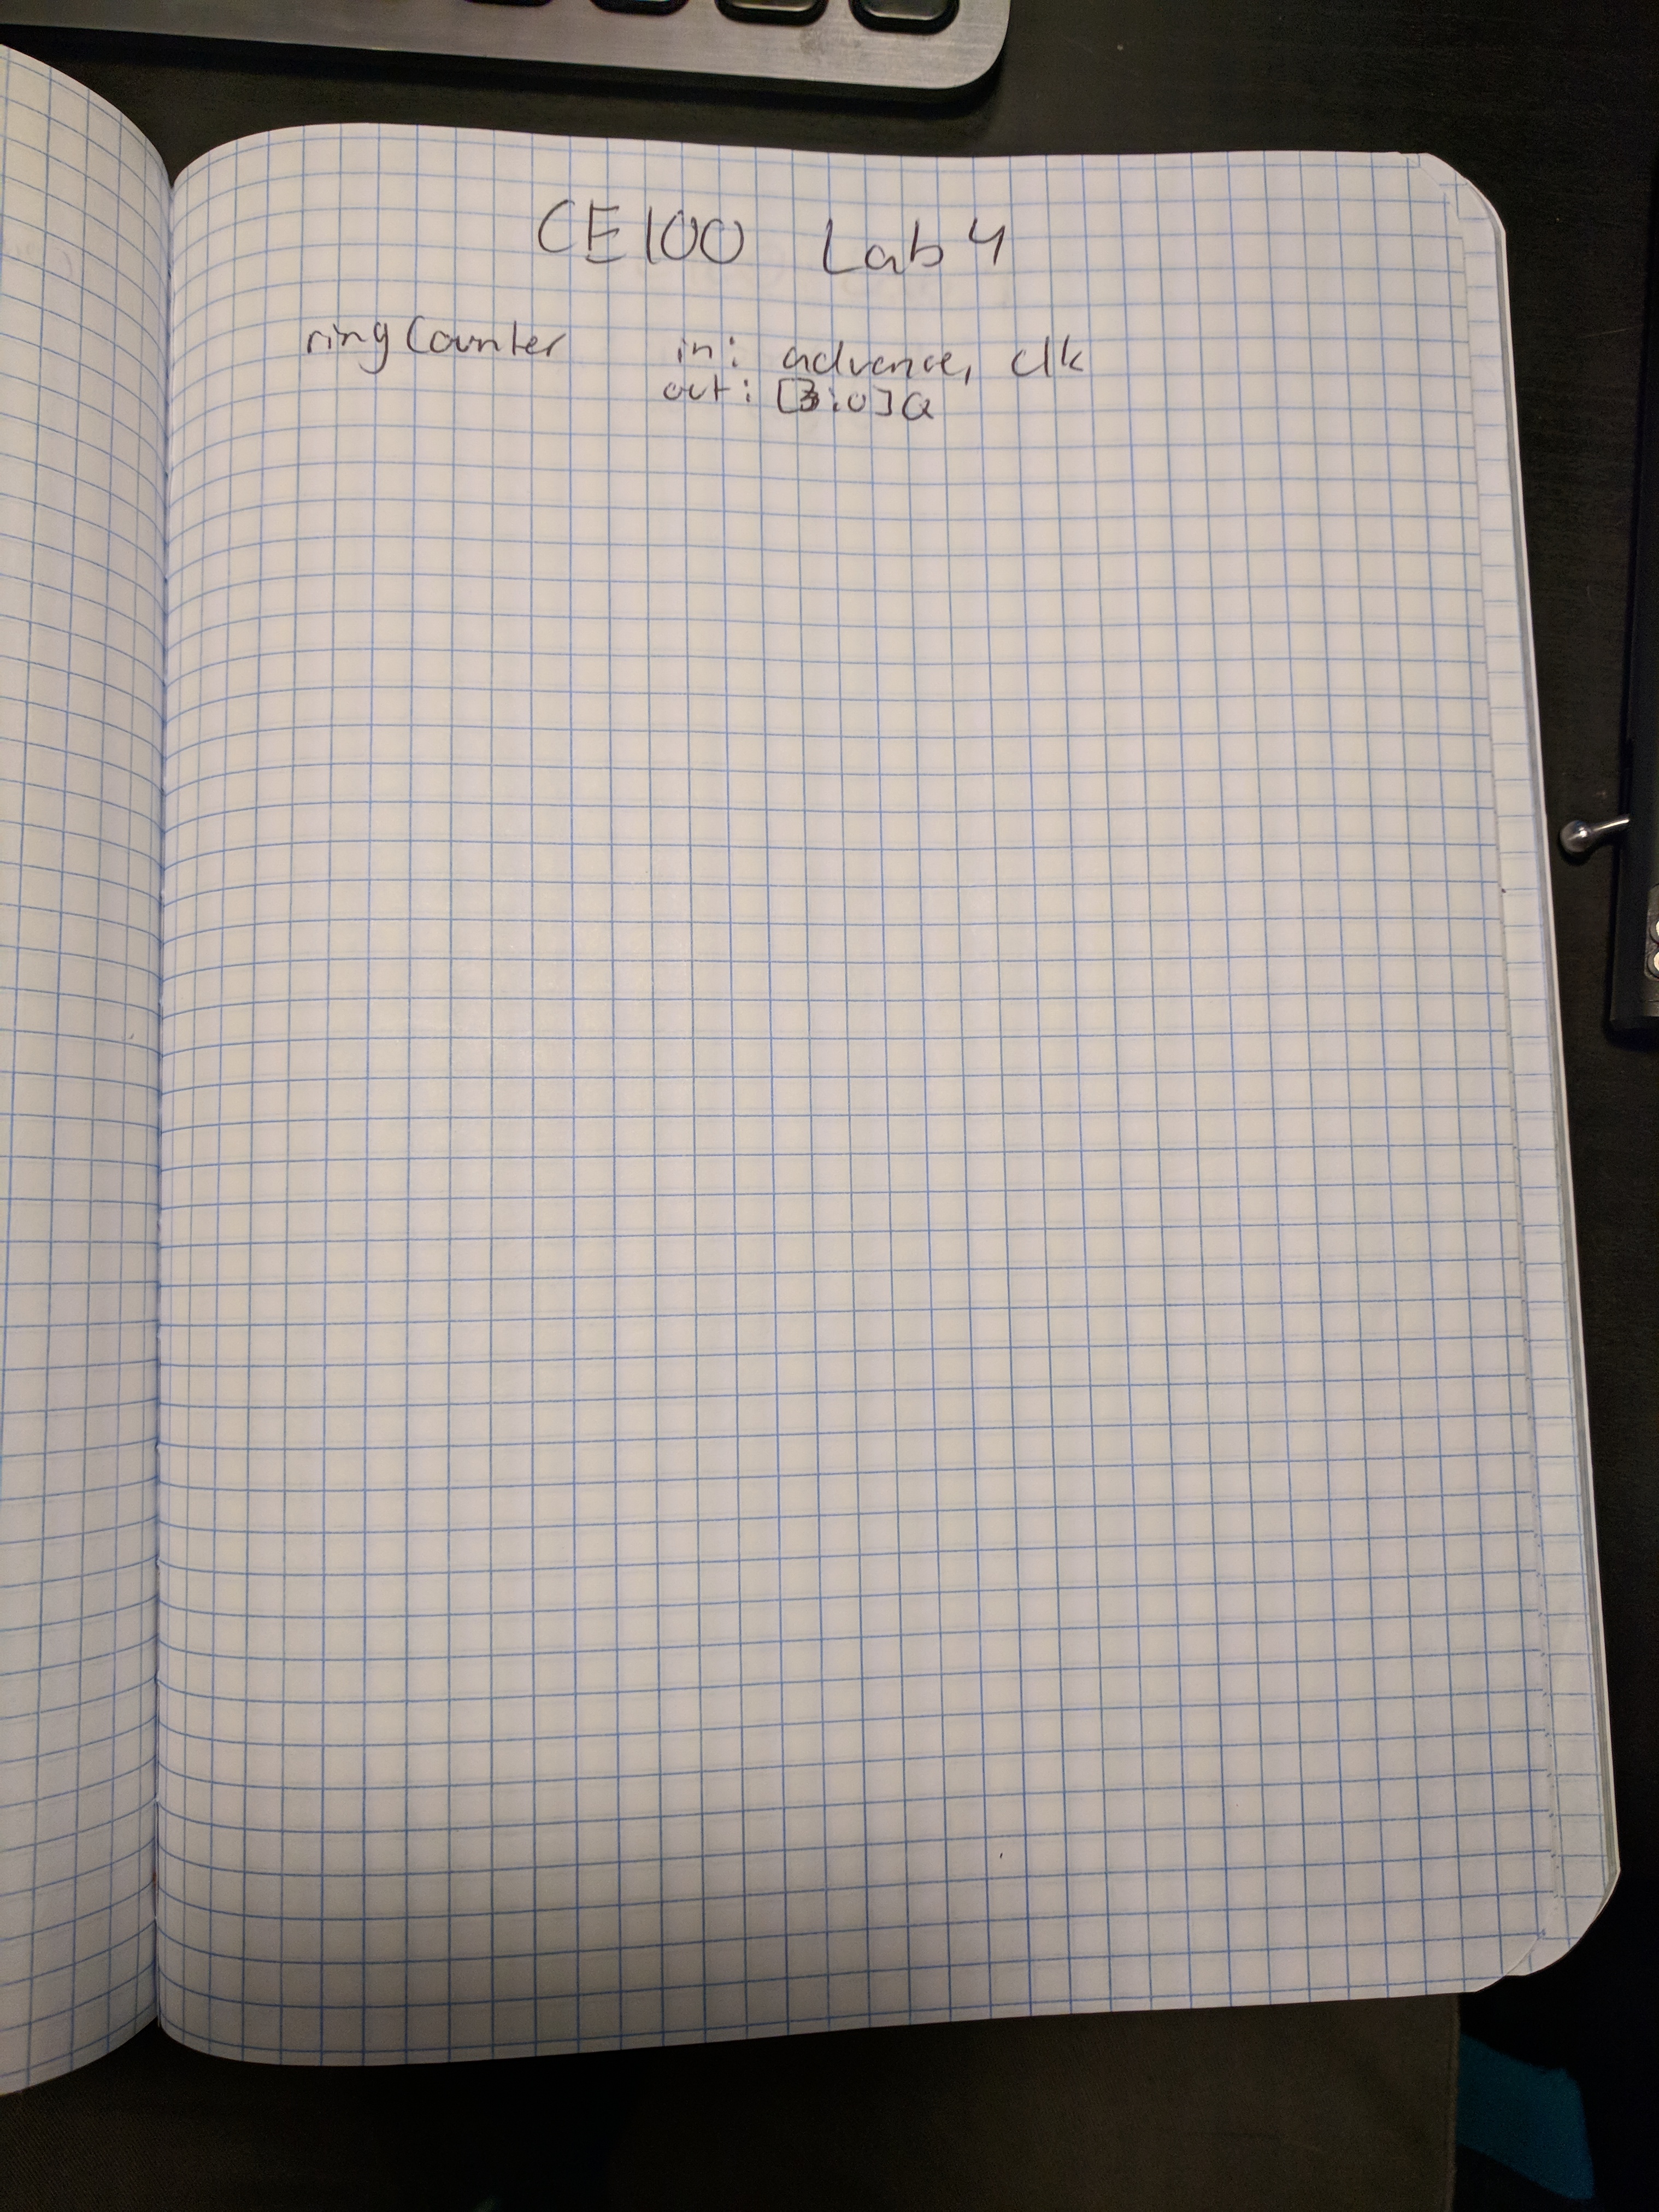 CE100 Lab 4
ring Counter in: advance, clk
out: [3:0]Q